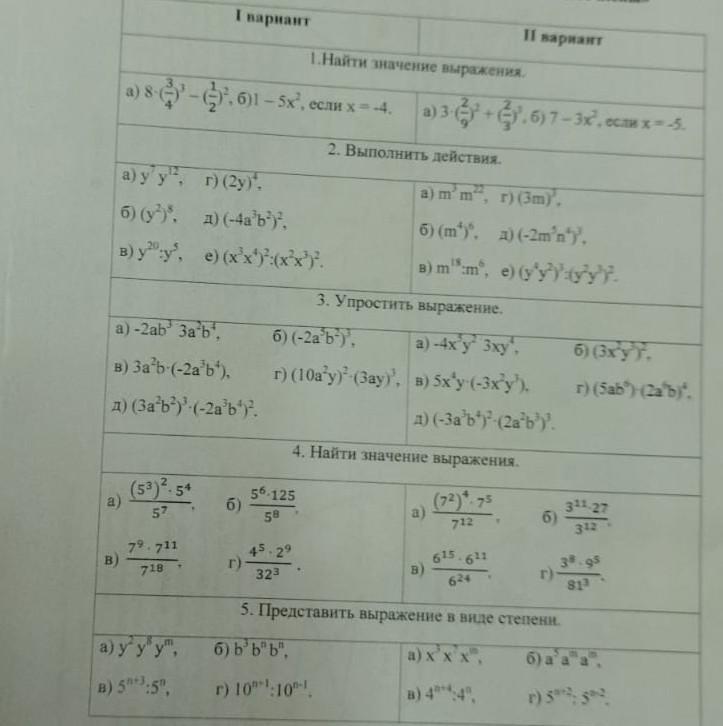 I вариант II вариант
1.Найти значение выражения.
а) 8·(3/4)³ – (1/2)², б)1 – 5x², если x = -4. а) 3·(2/9)² + (2/3)³, б) 7 – 3x², если x = -5.
2. Выполнить действия.
а) y⁷ y¹², г) (2y)⁴, а) m³ m²², г) (3m)³,
б) (y²)⁸, д) (-4a³b²)², б) (m⁴)⁶, д) (-2m⁵n⁴)³,
в) y²⁰:y⁵, е) (x³x⁴)²:(x²x³)². в) m¹⁸:m⁶, е) (y⁴y²)³:(y²y³)².
3. Упростить выражение.
а) -2ab³ 3a²b⁴, б) (-2a⁵b²)³, а) -4x⁵y² 3xy⁴, б) (3x²y³)²,
в) 3a²b·(-2a³b⁴), г) (10a²y)²·(3ay)³, в) 5x⁴y·(-3x²y³), г) (5ab⁶)·(2a⁶b)⁴,
д) (3a²b²)³·(-2a³b⁴)². д) (-3a³b⁴)²·(2a²b³)³.
4. Найти значение выражения.
а) (5³)² · 5⁴ / 5⁷, б) 5⁶·125 / 5⁸, а) (7²)⁴ · 7⁵ / 7¹², б) 3¹¹·27 / 3¹²,
в) 7⁹ · 7¹¹ / 7¹⁸, г) 4⁵ · 2⁹ / 32³. в) 6¹⁵ · 6¹¹ / 6²⁴, г) 3⁸ · 9⁵ / 81³.
5. Представить выражение в виде степени.
а) y² y⁸ yᵐ, б) b³ bⁿ bⁿ, а) x³ x⁷ xᵐ, б) a⁵ aᵐ aᵐ,
в) 5ⁿ⁺³:5ⁿ, г) 10ⁿ⁺¹:10ⁿ⁻¹. в) 4ⁿ⁺⁴:4ⁿ, г) 5ⁿ⁺²: 5ⁿ⁻².